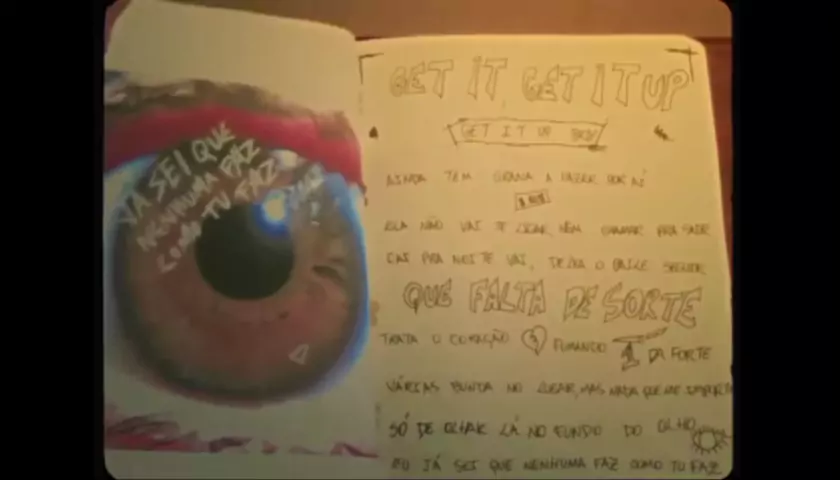 JÁ SEI QUE
NENHUMA FAZ
COMO TU FAZ
GET IT, GET IT UP
GET IT UP
AINDA TEM GRANA A FAZER POR AÍ
ELA NÃO VAI TE LIGAR, NEM CHAMAR PRA SAIR
CAI PRA NOITE VAI, DEIXA O BAILE SEGUIR
QUE FALTA DE SORTE
TRATA O CORAÇÃO FUMANDO 1 DA FORTE
VÁRIAS BUNDA NO LUGAR, MAS NADA QUE ME IMPORTE
SÓ DE OLHAR LÁ NO FUNDO DO OLHO
EU JÁ SEI QUE NENHUMA FAZ COMO TU FAZ